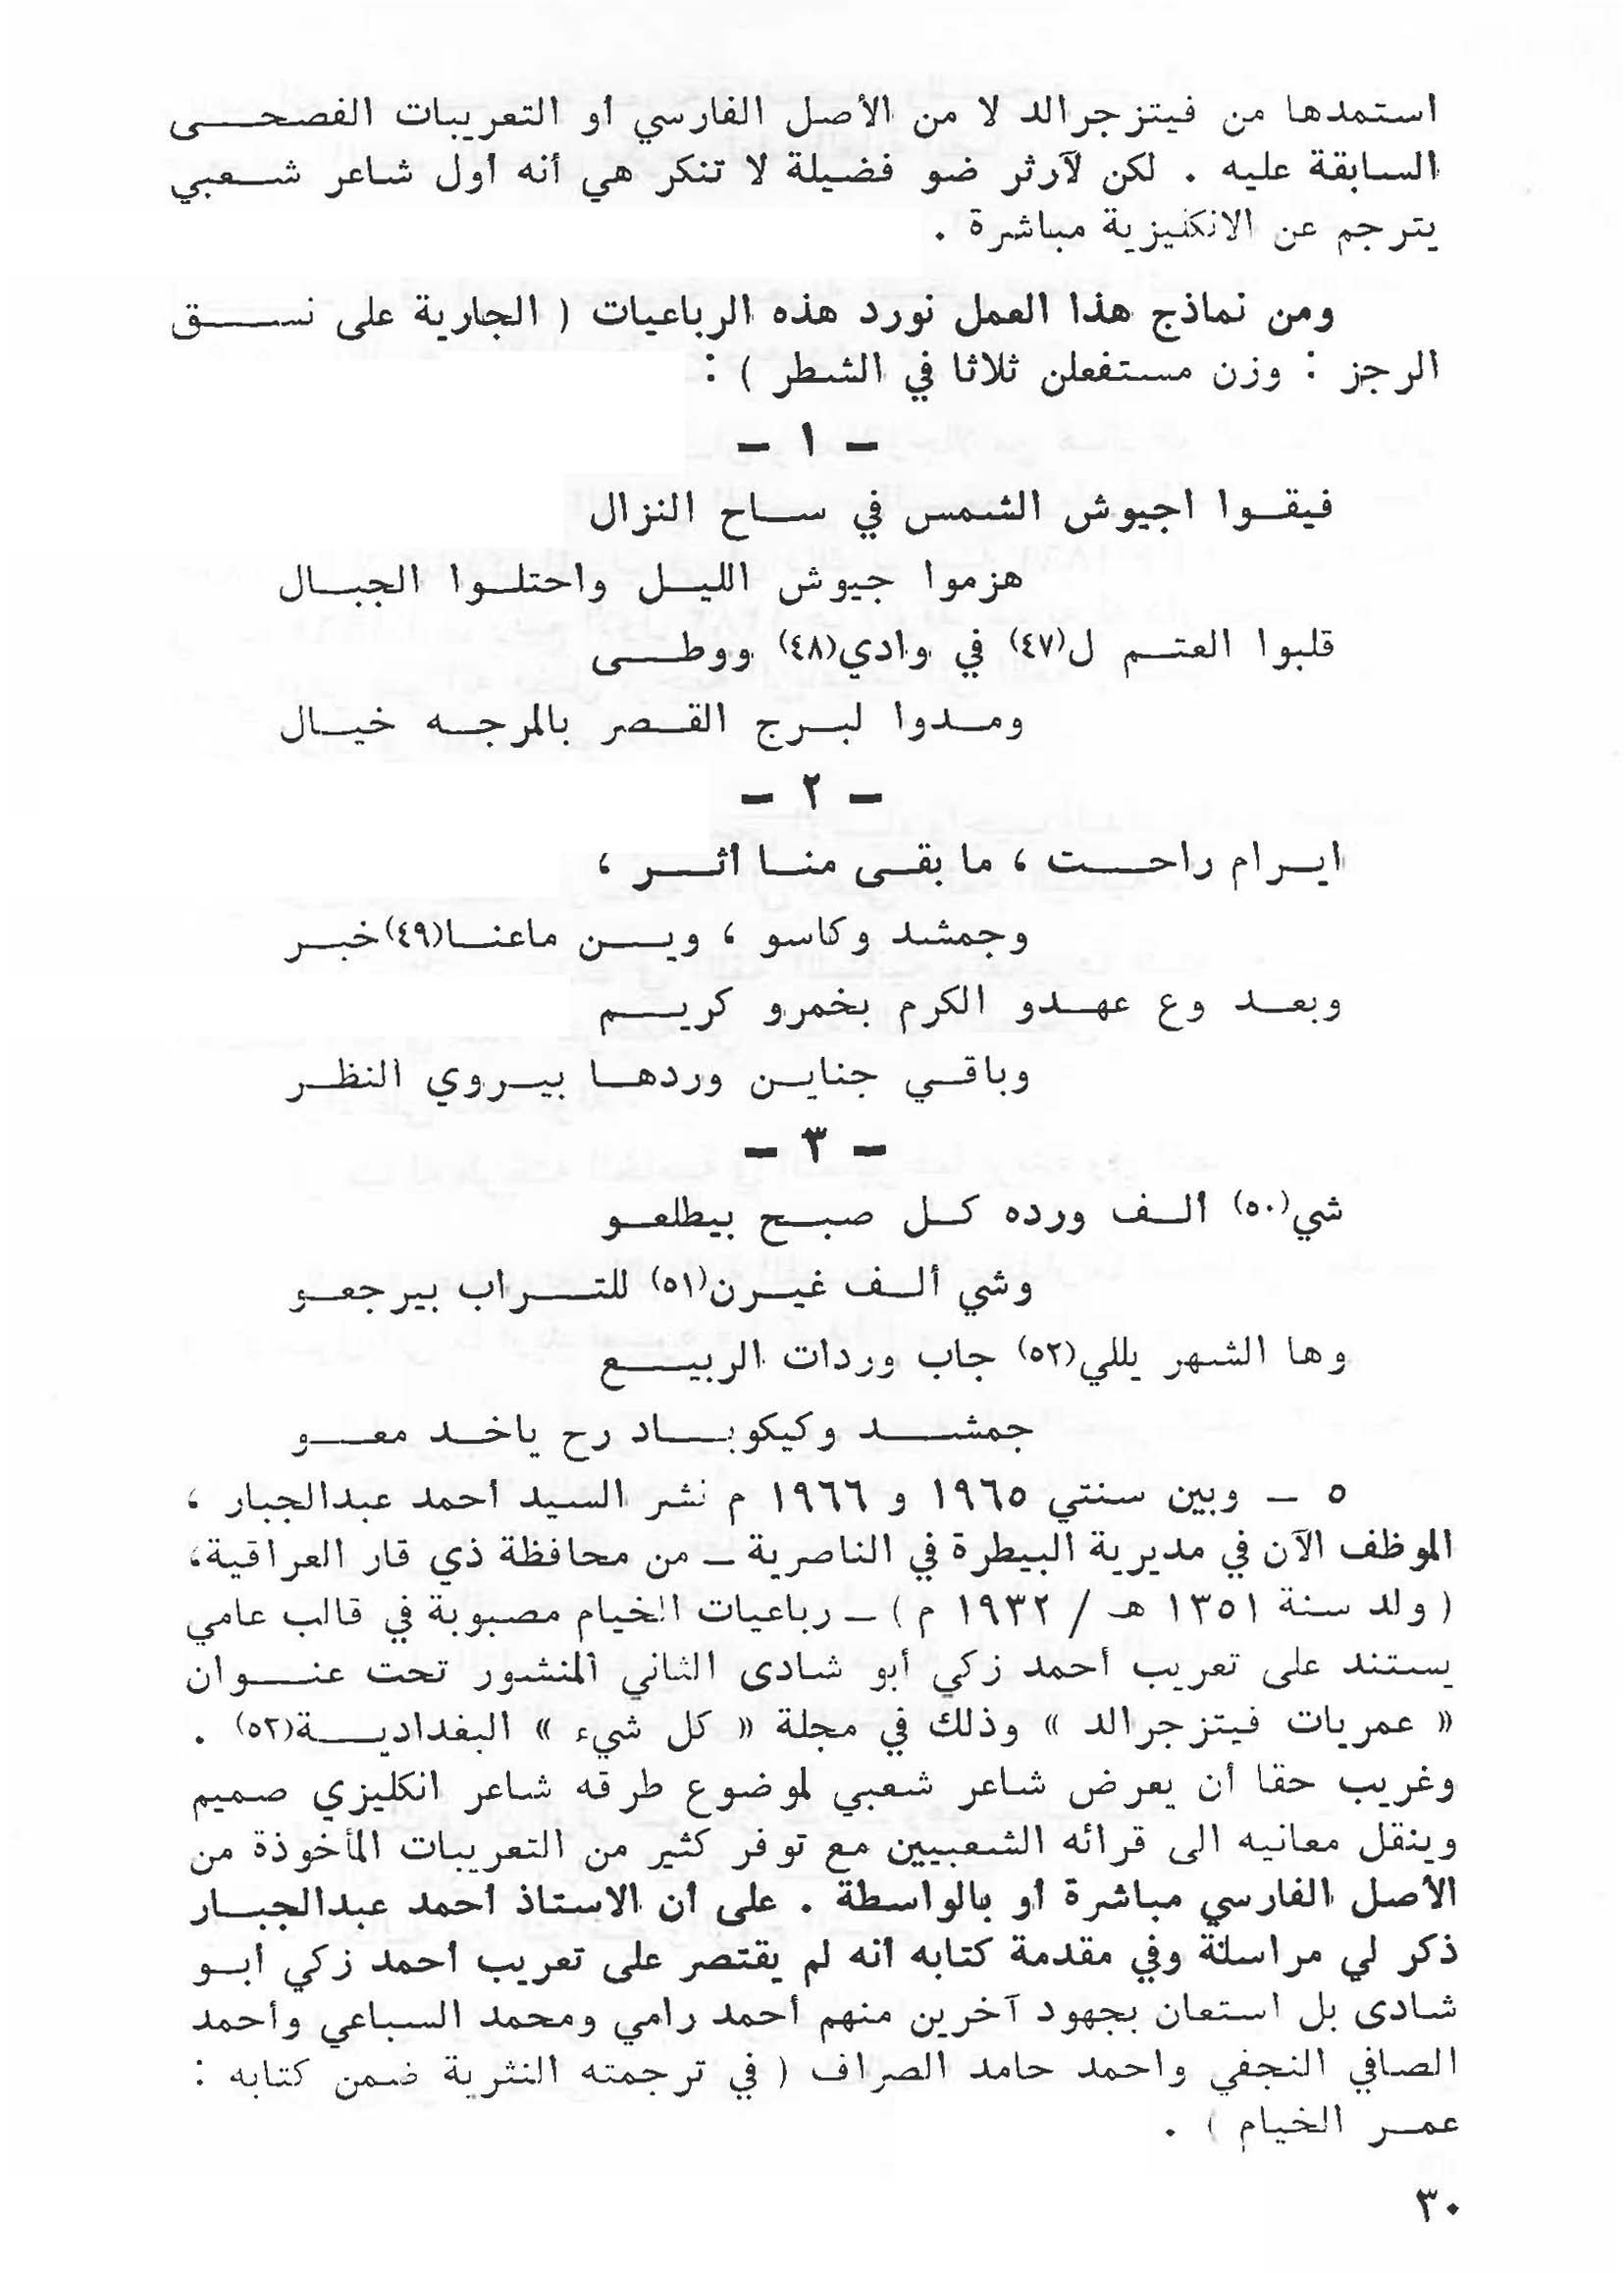 استمدها من فيتزجرالد لا من الأصل الفارسي أو التعريبات الفصحى
السابقة عليه . لكن لآرثر ضو فضيلة لا تنكر هي أنه أول شاعر شعبي
يترجم عن الانكليزية مباشرة .
ومن نماذج هذا العمل نورد هذه الرباعيات ( الجارية على نسق
الرجز : وزن مستفعلن ثلاثا في الشطر ) :
– ١ –
فيقوا اجيوش الشمس في ساح النزال
هزموا جيوش الليل واحتلوا الجبال
قلبوا العتم ل(٤٧) في وادي(٤٨) ووطى
ومدوا لبرج القصر بالمرجه خيال
– ٢ –
ايرام راحت ، ما بقى منا أثر ،
وجمشد وكاسو ، وين ماعنا(٤٩) خبر
وبعد وع عهدو الكرم بخمرو كريم
وباقي جناين وردها بيروي النظر
– ٣ –
شي(٥٠) ألف ورده كل صبح بيطلعو
وشي ألف غيرن(٥١) للتراب بيرجعو
وها الشهر يللي(٥٢) جاب وردات الربيع
جمشد وكيكوباد رح ياخد معو
٥ – وبين سنتي ١٩٦٥ و ١٩٦٦ م نشر السيد أحمد عبدالجبار ،
الموظف الآن في مديرية البيطرة في الناصرية – من محافظة ذي قار العراقية،
( ولد سنة ١٣٥١ هـ / ١٩٣٢ م ) – رباعيات الخيام مصبوبة في قالب عامي
يستند على تعريب أحمد زكي أبو شادى الثاني المنشور تحت عنوان
« عمريات فيتزجرالد » وذلك في مجلة « كل شيء » البغدادية(٥٣) .
وغريب حقا أن يعرض شاعر شعبي لموضوع طرقه شاعر انكليزي صميم
وينقل معانيه الى قرائه الشعبيين مع توفر كثير من التعريبات المأخوذة من
الأصل الفارسي مباشرة أو بالواسطة . على أن الاستاذ أحمد عبدالجبار
ذكر لي مراسلة وفي مقدمة كتابه أنه لم يقتصر على تعريب أحمد زكي أبو
شادى بل استعان بجهود آخرين منهم أحمد رامي ومحمد السباعي وأحمد
الصافي النجفي واحمد حامد الصراف ( في ترجمته النثرية ضمن كتابه :
عمر الخيام ) .
٣٠